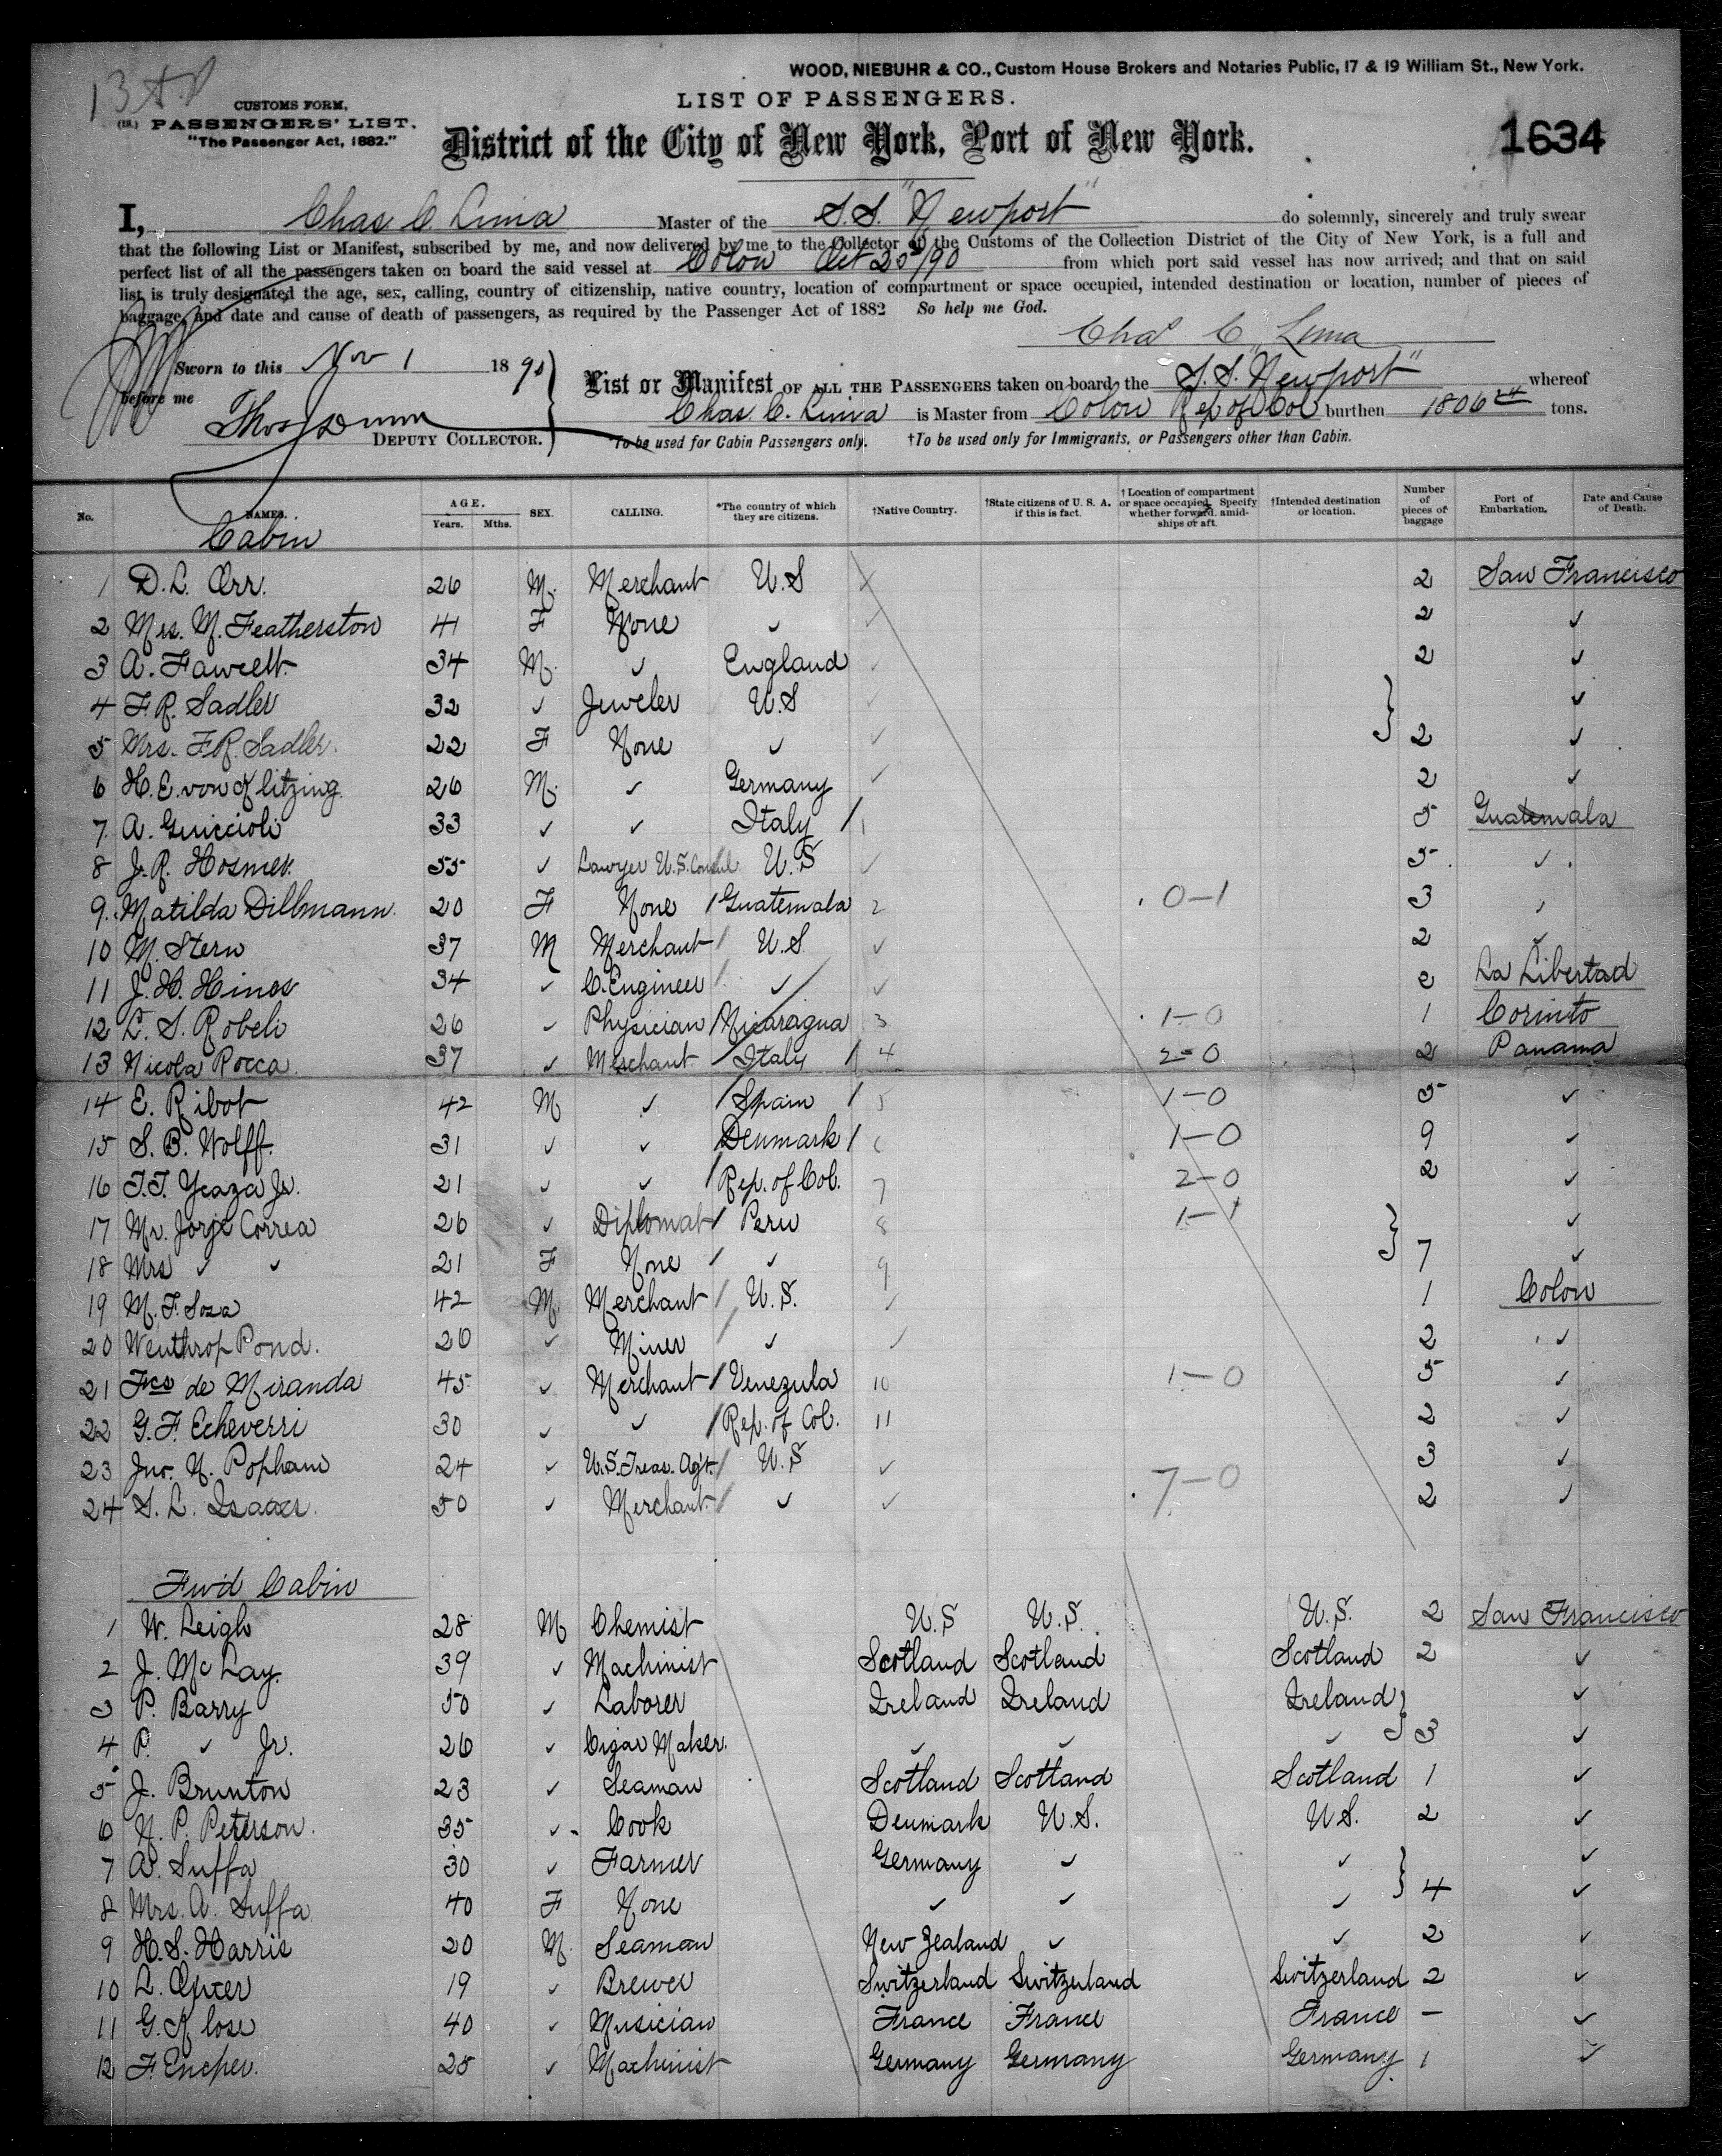 13
WOOD, NIEBUHR & CO., Custom House Brokers and Notaries Public, 17 & 19 William St., New York.
CUSTOMS FORM,
PASSENGERS' LIST.
"The Passenger Act, 1882."
LIST OF PASSENGERS.
District of the City of New York, Port of New York.
1634
I, Chas C Lima Master of the S.S. "Newport" do solemnly, sincerely and truly swear
that the following List or Manifest, subscribed by me, and now delivered by me to the Collector of the Customs of the Collection District of the City of New York, is a full and
perfect list of all the passengers taken on board the said vessel at Colon Oct 25/90 from which port said vessel has now arrived; and that on said
list is truly designated the age, sex, calling, country of citizenship, native country, location of compartment or space occupied, intended destination or location, number of pieces of
baggage, and date and cause of death of passengers, as required by the Passenger Act of 1882 So help me God.
Chas C Lima
Sworn to this Nov 1 1890
before me
List or Manifest OF ALL THE PASSENGERS taken on board the S.S. "Newport" whereof
Chas. C. Lima is Master from Colon Rep of Col burthen 1806 tons.
DEPUTY COLLECTOR.
*To be used for Cabin Passengers only. †To be used only for Immigrants, or Passengers other than Cabin.
No. NAMES. AGE. Years. Mths. SEX. CALLING. *The country of which they are citizens. †Native Country. †State citizens of U. S. A. if this is fact. †Location of compartment or space occupied. Specify whether forward, amidships or aft. †Intended destination or location. Number of pieces of baggage Port of Embarkation. Date and Cause of Death.
Cabin
1 D. L. Orr. 26 M. Merchant U.S ✓ 2 San Francisco
2 Mrs. M. Featherston 41 F None ✓ ✓ 2 ✓
3 A. Fawcett 34 M. ✓ England ✓ 2 ✓
4 F. R. Sadler 32 ✓ Jeweler U.S ✓ ✓
5 Mrs. F R Sadler. 22 F None ✓ ✓ 2 ✓
6 H. E. von Klitzing 26 M. ✓ Germany ✓ 2 ✓
7 A. Guiccioli 33 ✓ ✓ Italy 1 5 Guatemala
8 J. R. Hosmer. 55 ✓ Lawyer U.S. Consul U.S ✓ 5 ✓
9 Matilda Dillmann 20 F None Guatemala 2 0-1 3 ✓
10 M. Stern 37 M Merchant U.S ✓ 2 ✓
11 J. H. 34 ✓ C. Engineer ✓ ✓ 2 La Libertad
12 L. S. Robelo 26 ✓ Physician Nicaragua 3 1-0 1 Corinto
13 Nicola Rocca 37 ✓ Merchant Italy 4 2-0 2 Panama
14 E. Ribot 42 M ✓ Spain 5 1-0 5 ✓
15 S. B. Wolff. 31 ✓ ✓ Denmark 6 1-0 9 ✓
16 Ycaza Jr. 21 ✓ ✓ Rep. of Col. 7 2-0 2 ✓
17 Mr. Jorje Correa 26 ✓ Diplomat Peru 8 1-1 ✓
18 Mrs ✓ ✓ 21 F None ✓ 9 7 ✓
19 M. F. Soza 42 M Merchant U.S. ✓ 1 Colon
20 Wenthrop Pond. 26 ✓ Miner ✓ ✓ 2 ✓
21 Fco de Miranda 45 ✓ Merchant Venezula 10 1-0 5 ✓
22 G. F. Echeverri 30 ✓ ✓ Rep. of Col. 11 2 ✓
23 Jno. N. Popham 24 ✓ U.S. Treas. Agt. U.S ✓ 7-0 3 ✓
24 S. L. Isaacs. 50 ✓ Merchant ✓ ✓ 2 ✓
Fwd Cabin
1 W. Leigh 28 M Chemist U.S U.S. U.S. 2 San Francisco
2 J. McLay. 39 ✓ Machinist Scotland Scotland Scotland 2 ✓
3 P. Barry 50 ✓ Laborer Ireland Ireland Ireland ✓
4 P. ✓ Jr. 26 ✓ Cigar Maker. ✓ ✓ ✓ 3 ✓
5 J. Brunton 23 ✓ Seaman Scotland Scotland Scotland 1 ✓
6 N. P. Peterson. 35 ✓ Cook Denmark U.S. U.S. 2 ✓
7 A. Suffa 30 ✓ Farmer Germany ✓ ✓ ✓
8 Mrs. A. Suffa 40 F None ✓ ✓ ✓ 4 ✓
9 H. S. Harris 20 M. Seaman New Zealand ✓ ✓ 2 ✓
10 L. 19 ✓ Brewer Switzerland Switzerland Switzerland 2 ✓
11 G. Klose 40 ✓ Musician France France France – ✓
12 F. 25 ✓ Machinist Germany Germany Germany 1 ✓